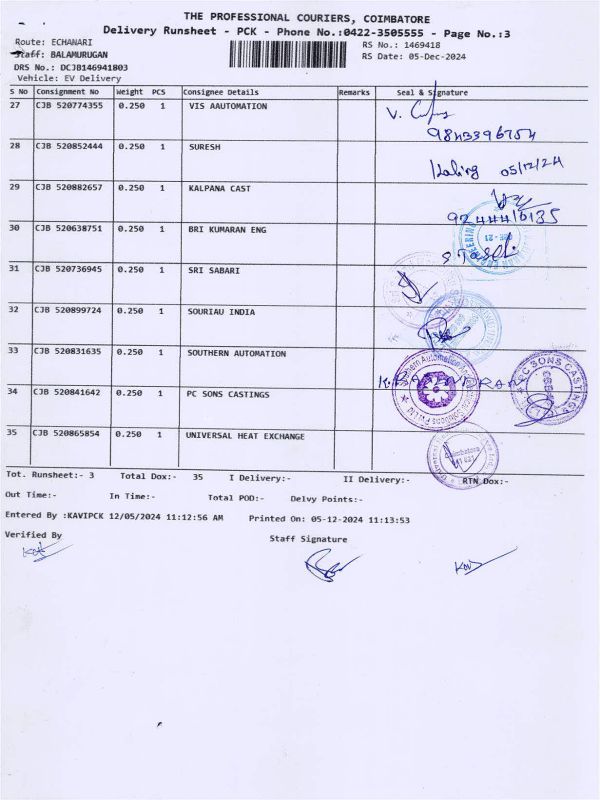 THE PROFESSIONAL COURIERS, COIMBATORE
Delivery Runsheet - PCK - Phone No.:0422-3505555 - Page No.:3
Route: ECHANARI
RS No.: 1469418
Staff: BALAMURUGAN
RS Date: 05-Dec-2024
DRS No.: DCJB146941803
Vehicle: EV Delivery
S No Consignment No Weight PCS Consignee Details Remarks Seal & Signature
27 CJB 520774355 0.250 1 VIS AAUTOMATION
9843396754
28 CJB 520852444 0.250 1 SURESH
05/12/24
29 CJB 520882657 0.250 1 KALPANA CAST
30 CJB 520638751 0.250 1 BRI KUMARAN ENG
31 CJB 520736945 0.250 1 SRI SABARI
32 CJB 520899724 0.250 1 SOURIAU INDIA
33 CJB 520831635 0.250 1 SOUTHERN AUTOMATION
34 CJB 520841642 0.250 1 PC SONS CASTINGS
PC SONS CASTINGS
35 CJB 520865854 0.250 1 UNIVERSAL HEAT EXCHANGE
Tot. Runsheet:- 3 Total Dox:- 35 I Delivery:- II Delivery:- RTN Dox:-
Out Time:- In Time:- Total POD:- Delvy Points:-
Entered By :KAVIPCK 12/05/2024 11:12:56 AM Printed On: 05-12-2024 11:13:53
Verified By
Staff Signature